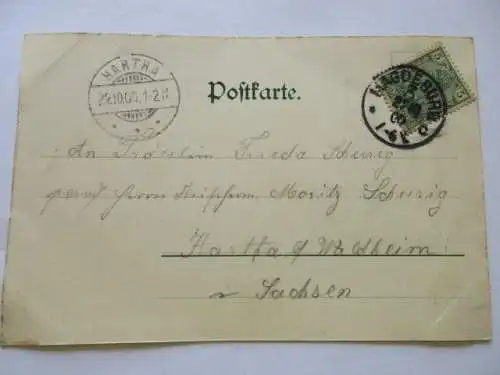 HARTHA
29.10.00.1-2N
Postkarte.
MAGDEBURG
5
5
An Fräulein Frieda Schurig
Herrn Moritz Schurig
Hartha b/ Waldheim
Sachsen